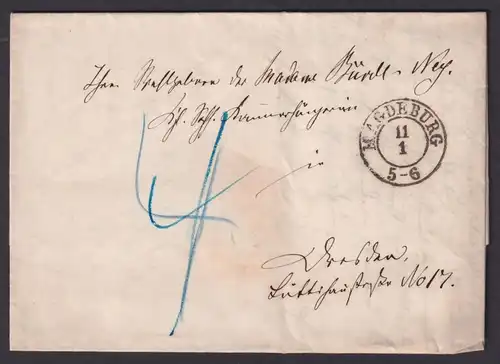 Ihrer Wohlgeboren der Madame Bürde-Ney.
Kgl. Sächs. Kammersängerin
in
MAGDEBURG
11
1
5-6
4
Dresden.
Lüttichaustraße No 17.